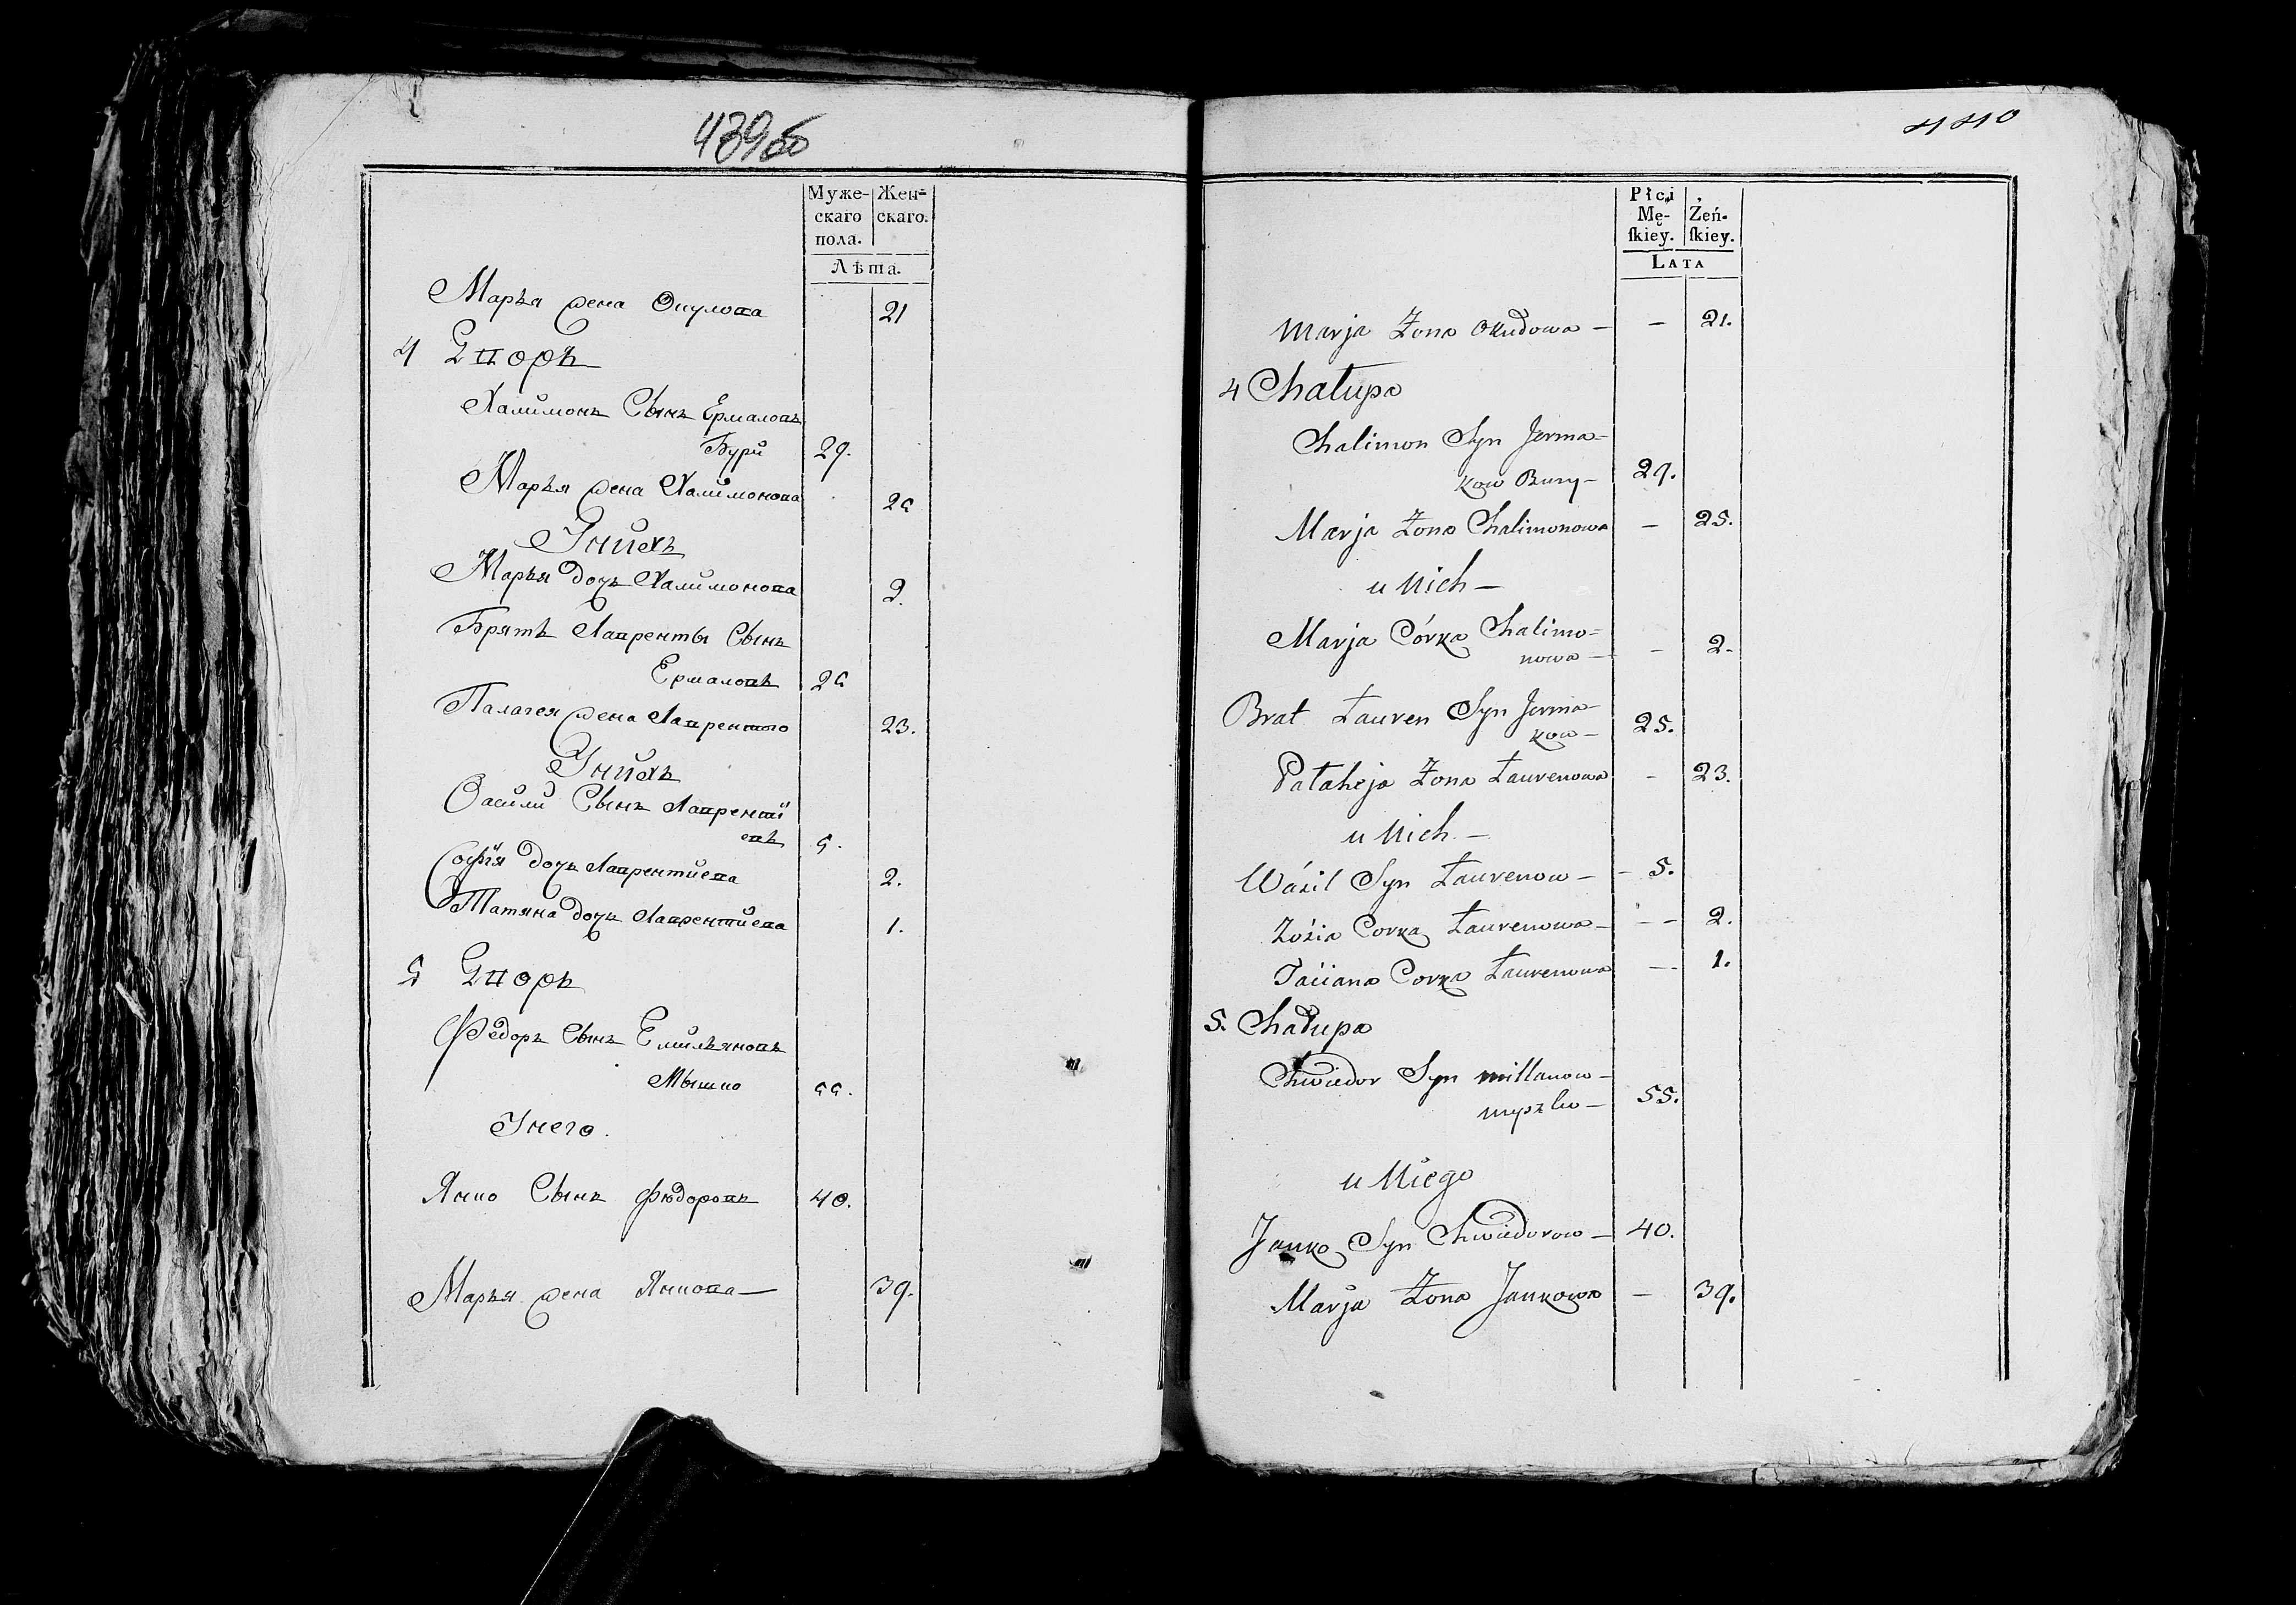 439об
Муже-
скаго
пола.
Жен-
скаго.
Лѣта.
Марья жена Окулова 21
4 Дворъ
Халимонъ Сынъ Ермаловъ
Бури 29.
Марья жена Халимонова 25
Унихъ
Марья дочь Халимонова 2.
Братъ Лавренты Сынъ
Ермаловъ 25
Палагея жена Лавренто 23.
Унихъ
Васили Сынъ Лаврентї
евъ 5.
Софїя дочь Лаврентиева 2.
Татяна дочь Лаврентиева 1.
5 Дворъ
Федоръ Сынъ Емильяновъ
Мышко 55.
Унего.
Янко Сынъ Фюдоровъ 40.
Марья жена Янкова — 39.
440
Płci
Mę-
ſkiey.
Żeń-
ſkiey.
LATA
Marja Żona Okudowa — — 21.
4 Chałupa
Chalimon Syn Jerma-
kow Bury — 29.
Marja Żona Chalimonowa — 25.
u Nich —
Marja Córka Chalimo=
nowa — — 2.
Brat Łauren Syn Jerma-
kow — 25.
Pałaheja Żona Łaurenowa — 23.
u Nich —
Wáśil Syn Łaurenow — — 5.
Zośia Corka Łaurenowa — — — 2.
Taćiana Corka Łaurenowa — 1.
5. Chałupa
Chwiedor Syn millanow —
myszko — 55.
u Niego
Janko Syn Chwiedorow — 40.
Marja Żona Jankowa — 39.